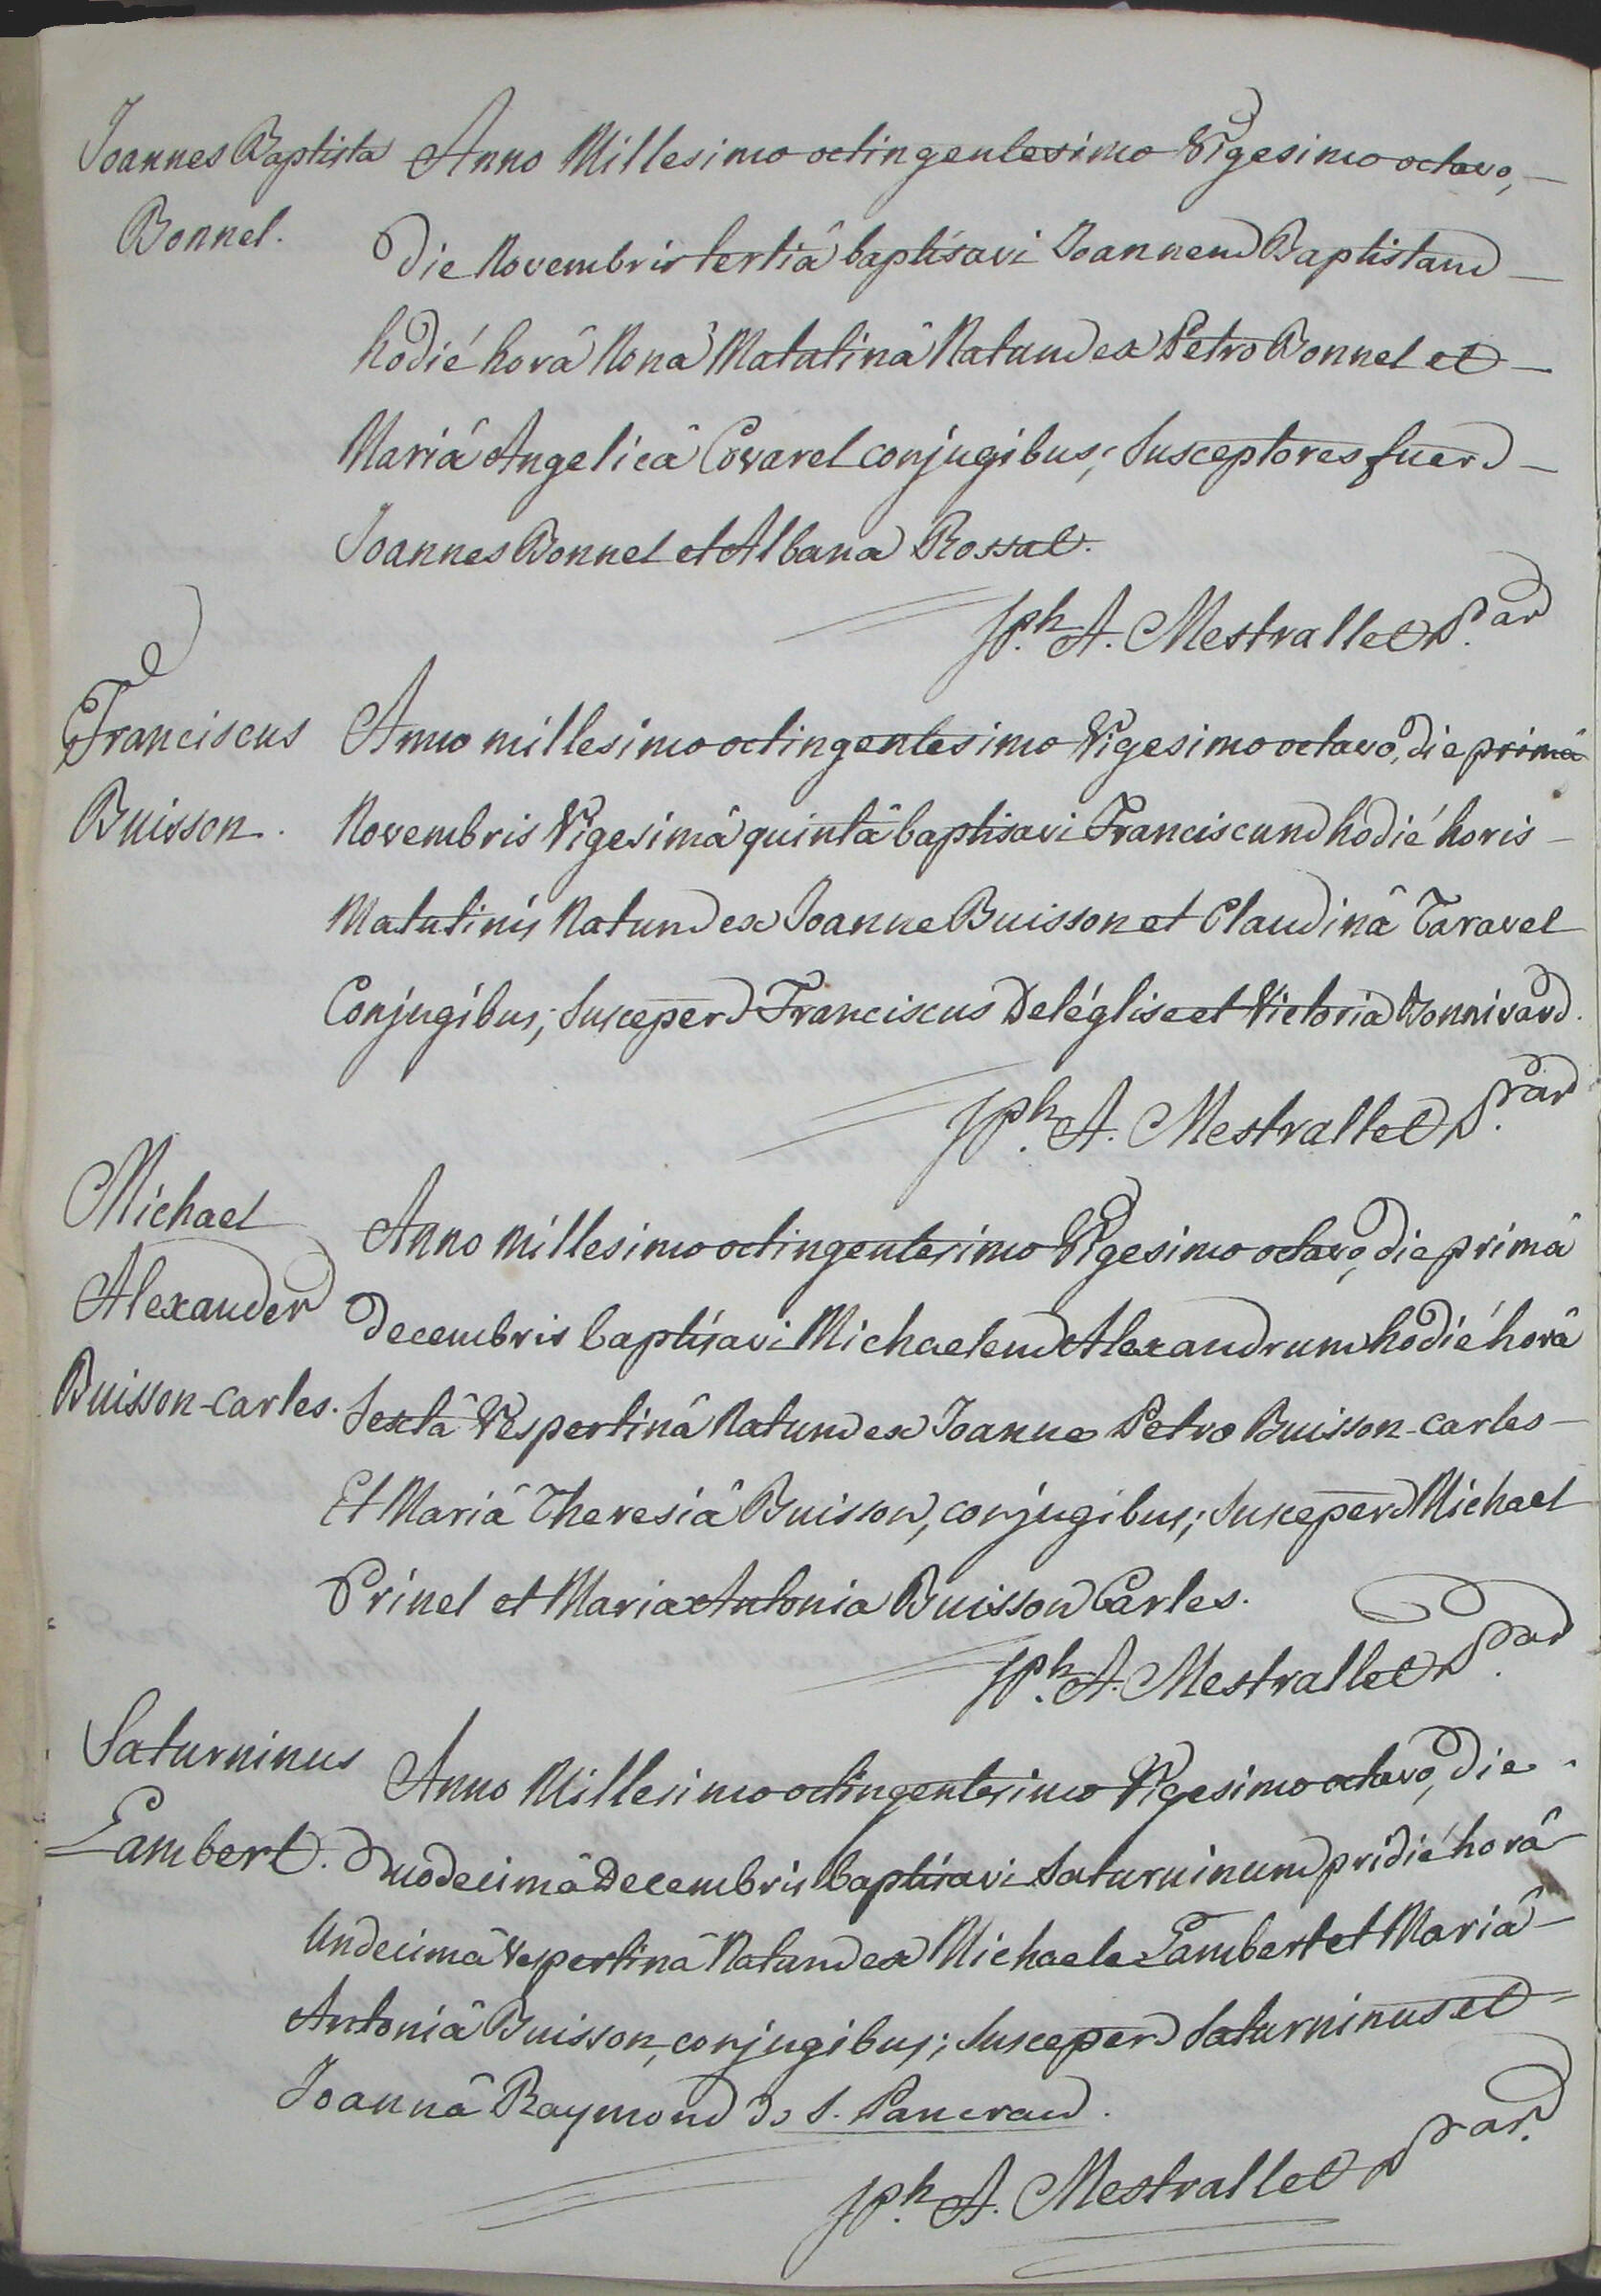 Joannes Baptista
Bonnel.
Anno Millesimo octingentesimo Vigesimo octavo, —
die Novembris tertiâ baptisavi Joannem Baptistam —
hodié horâ Nonâ Matutinâ Natum ex Petro Bonnel et —
Mariâ Angelicâ Covarel conjugibus; Susceptores fuer —
Joannes Bonnel et Albana Rossat.
Jph. A. Mestrallet
Franciscus
Buisson.
Anno millesimo octingentesimo Vigesimo octavo, die primâ
Novembris Vigesimâ quintâ baptisavi Franciscum hodié horis —
Matutinis Natum ex Joanne Buisson et Claudinâ Taravel
Conjugibus; Susceper Franciscus Deléglise et Victoria Bonnivard.
Jph. A. Mestrallet
Michael
Alexander
Buisson-carles.
Anno Millesimo octingentesimo Vigesimo octavo, die primâ
decembris baptisavi Michaelem Alexandrum hodié horâ
Sextâ Vespertinâ Natum ex Joanne Petro Buisson-carles —
Et Mariâ Theresiâ Buisson, conjugibus; Susceper Michael
Prinel et Maria Antonia Buisson Carles.
Jph. A. Mestrallet
Saturninus
Lambert.
Anno Millesimo octingentesimo Vigesimo octavo, die
duodecimâ Decembris baptisavi Saturninum pridié horâ
Undecimâ Vespertinâ Natum ex Michaele Lambert et Mariâ —
Antoniâ Buisson, conjugibus; Susceper Saturninus et =
Joannâ Raymond de S. Pancrace.
Jph. A. Mestrallet